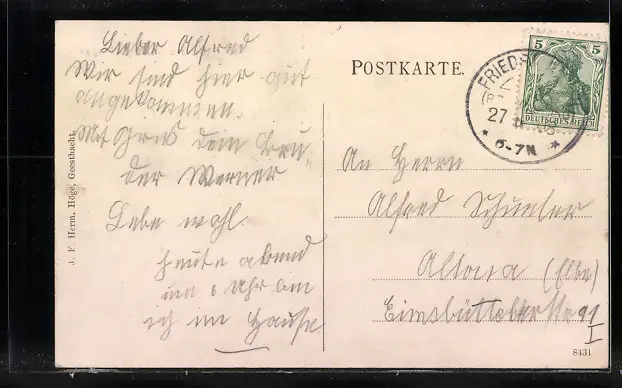 Lieber Alfred
Wir sind hier gut
angekommen.
Mit Grus dein Bru-
der Werner
Lebe wohl
heute abend
um 8 Uhr bin
ich im Hause
J. F. Herm. Höge, Geesthacht.
POSTKARTE.
5 5
DEUTSCHES REICH
FRIEDR
27
* 6-7N *
An Herrn
Alfred
Altona (Elbe)
Eimsbüttelerstr 91
I
8431